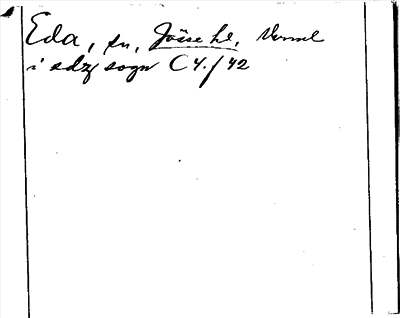 Eda, sn, Jösse hd, Verml
i edz sogn C 4./42